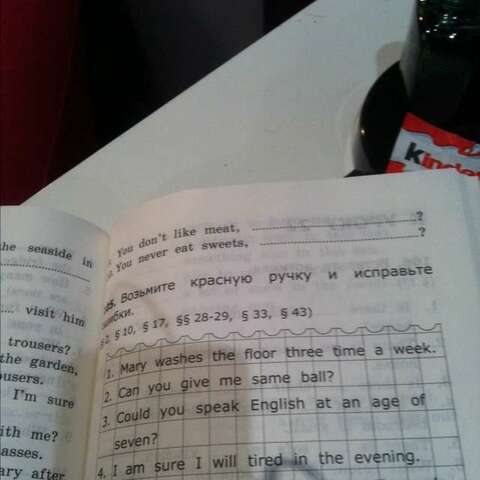 he seaside in
visit him
trousers?
the garden,
users.
I'm sure
ith me?
asses.
ary after
You don't like meat, ........?
You never eat sweets, ........?
Возьмите красную ручку и исправьте
ошибки.
§ 10, § 17, §§ 28-29, § 33, § 43)
1. Mary washes the floor three time a week.
2. Can you give me same ball?
3. Could you speak English at an age of
seven?
4. I am sure I will tired in the evening.
Kinder